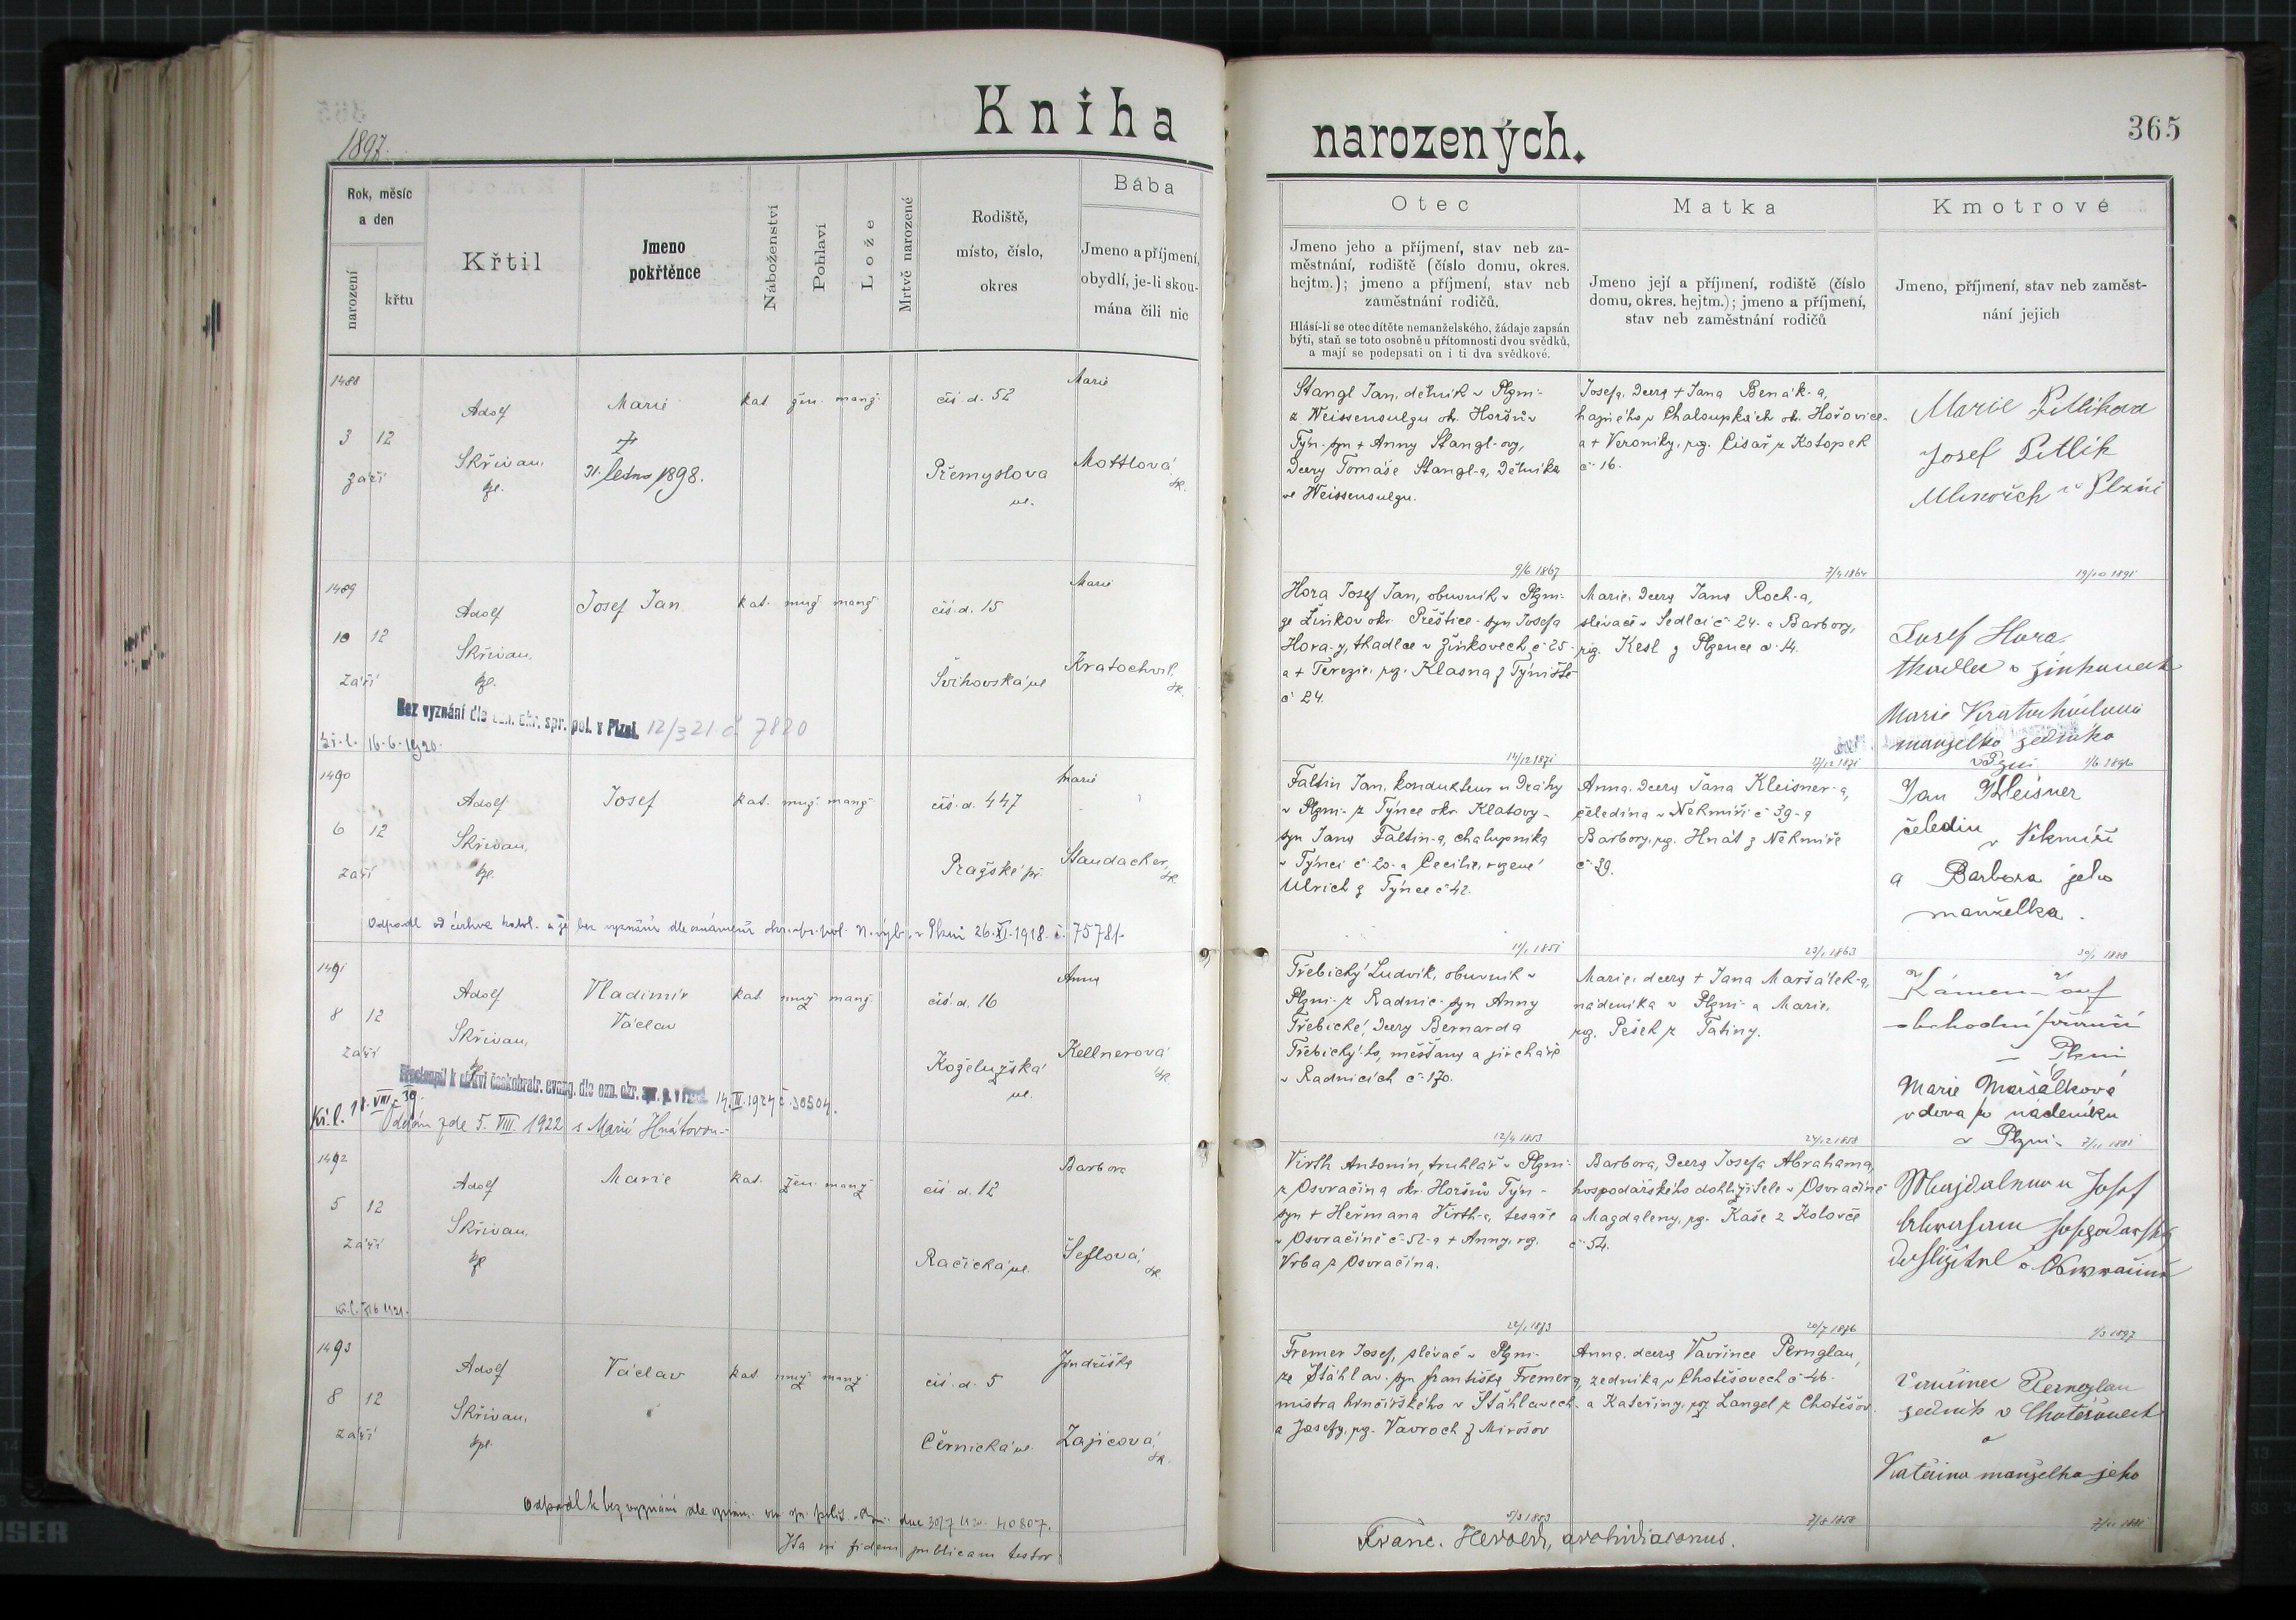 Kniha
narozených.
365
1897.
Rok, měsíc
a den
narození
křtu
Křtil
Jmeno
pokřtěnce
Náboženství
Pohlaví
Lože
Mrtvě narozené
Rodiště,
místo, číslo,
okres
Bába
Jmeno a příjmení,
obydlí, je-li skou-
mána čili nic
Otec
Jmeno jeho a příjmení, stav neb za-
městnání, rodiště (číslo domu, okres.
hejtm.); jmeno a příjmení, stav neb
zaměstnání rodičů.
Hlásí-li se otec dítěte nemanželského, žádaje zapsán
býti, staň se toto osobně u přítomnosti dvou svědků,
a mají se podepsati on i ti dva svědkové.
Matka
Jmeno její a příjmení, rodiště (číslo
domu, okres. hejtm.); jmeno a příjmení,
stav neb zaměstnání rodičů
Kmotrové
Jmeno, příjmení, stav neb zaměst-
nání jejich
1488
3 12
září
Adolf
Skřivan,
kpl.
Marie
31. ledna 1898.
kat. žen. manž.
čís. d. 52
Přemyslova
ul.
Marie
Mottlová
zk.
Stangl Jan, dělník v Plzni-
z Weissensulzu ok. Horšův
Týn- syn + Anny Stangl-ovy,
dcery Tomáše Stangl-a, dělníka
ve Weissensulzu.
9/6 1867
Josefa, dcera + Jana Benák-a,
hajného v Chaloupkách ok. Hořovice-
a + Veroniky, roz. Císař z Kotopek
č. 16.
7/4 1864
Marie Pitlíková
Josef Pitlík
v Plzni
19/10 1891
1489
10 12
září
Adolf
Skřivan,
kpl.
Josef Jan
kat. muž. manž.
čís. d. 15
Švihovská ul.
Marie
Kratochvil,
zk.
Bez vyznání dle ozn. okr. spr. pol. v Plzni. 12/3 21 č. 7820
kř. l. 16.6.1920.
Hora Josef Jan, obuvník v Plzni-
ze Žinkov okr. Přeštice- syn Josefa
Hora-y, tkadlce v Žinkovech č. 25-
a + Terezie, roz. Klasna z Týniště
č. 24.
14/12 1871
Marie, dcera Jana Roch-a,
slévače v Sedlci č. 24- a Barbory,
roz. Kesl z Plzence č. 14.
17/12 1871
Josef Hora
tkadlec v Žinkovech
Marie Kratochvílová
manželka zedníka
v Plzni
1/6 1896
1490
6 12
září
Adolf
Skřivan,
kpl.
Josef
kat. muž. manž.
čís. d. 447
Pražské př.
Marie
Staudacher,
zk.
Odpadl od církve katol. a je bez vyznání dle oznámení okr. spr. pol. N. výb. v Plzni 26.XI.1918 č. 75781.
Faltin Jan, konduktur u Dráhy
v Plzni- z Týnce okr. Klatovy-
syn Jana Faltin-a, chalupníka
v Týnci č. 20- a Cecilie, rozené
Ulrich z Týnce č. 42.
Anna, dcera Jana Kleisner-a,
čeledína v Nekmíři č. 39- a
Barbory, roz. Hnát z Nekmíře
č. 39.
23/1 1863
Jan Kleisner
čeledín
v Nekmíři
a Barbora jeho
manželka.
1491
8 12
září
Adolf
Skřivan,
Vladimír
Václav
kat. muž. manž.
čís. d. 16
Koželužská
ul.
Anna
Kellnerová
zk.
Přestoupil k církvi českobratr. evang. dle ozn. okr. spr. p. v Plzni
Oddán zde 5. VIII. 1922 s Marií Hnátovou-
Třebický Ludvík, obuvník v
Plzni- z Radnic- syn Anny
Třebické, dcery Bernarda
Třebický-ho, měšťana a jircháře
v Radnicích č. 170.
12/4 1853
Marie, dcera + Jana Maršálek-a,
nádeníka v Plzni- a Marie,
roz. Pešek z Tatiny.
24/12 1858
obchodní
Plzni
Marie Maršálková
vdova po nádeníku
v Plzni-
7/11 1881
1492
5 12
září
Adolf
Skřivan,
kpl
Marie
kat. žen. manž.
čís. d. 12
Račická ul.
Barbora
Šeflová,
zk.
Virth Antonín, truhlář v Plzni-
z Osvračína okr. Horšův Týn-
syn + Heřmana Virth-a, tesaře
v Osvračíně č. 52- a + Anny, roz.
Vrba z Osvračína.
22/1 1873
Barbora, dcera Josefa Abrahama,
hospodářského dohližitele v Osvračíně
a Magdaleny, roz. Kaše z Koloveč
č. 54.
20/7 1876
Josef
1/3 1897
1493
8 12
září
Adolf
Skřivan,
kpl.
Václav
kat. muž. manž.
čís. d. 5
Černická ul.
Jindřiška
Zajícová,
zk.
Odpadl k bez vyznání dle
Ita in fidem publicam testor
Fremer Josef, slévač v Plzni-
ze Šťáhlav- syn Františka Fremer-a,
mistra hrnčířského v Šťáhlavech-
a Josefy, roz. Vavroch z Mirošov
5/3 1853
Anna, dcera Vavřince Pernglau,
zedníka v Chotěšovech č. 46-
a Kateřiny, roz. Langel z Chotěšov.
7/8 1858
Vavřinec Pernglau
zedník v Chotěšovech
a
Kateřina manželka jeho
7/11 1881
Franc. Herold, archidiaconus.